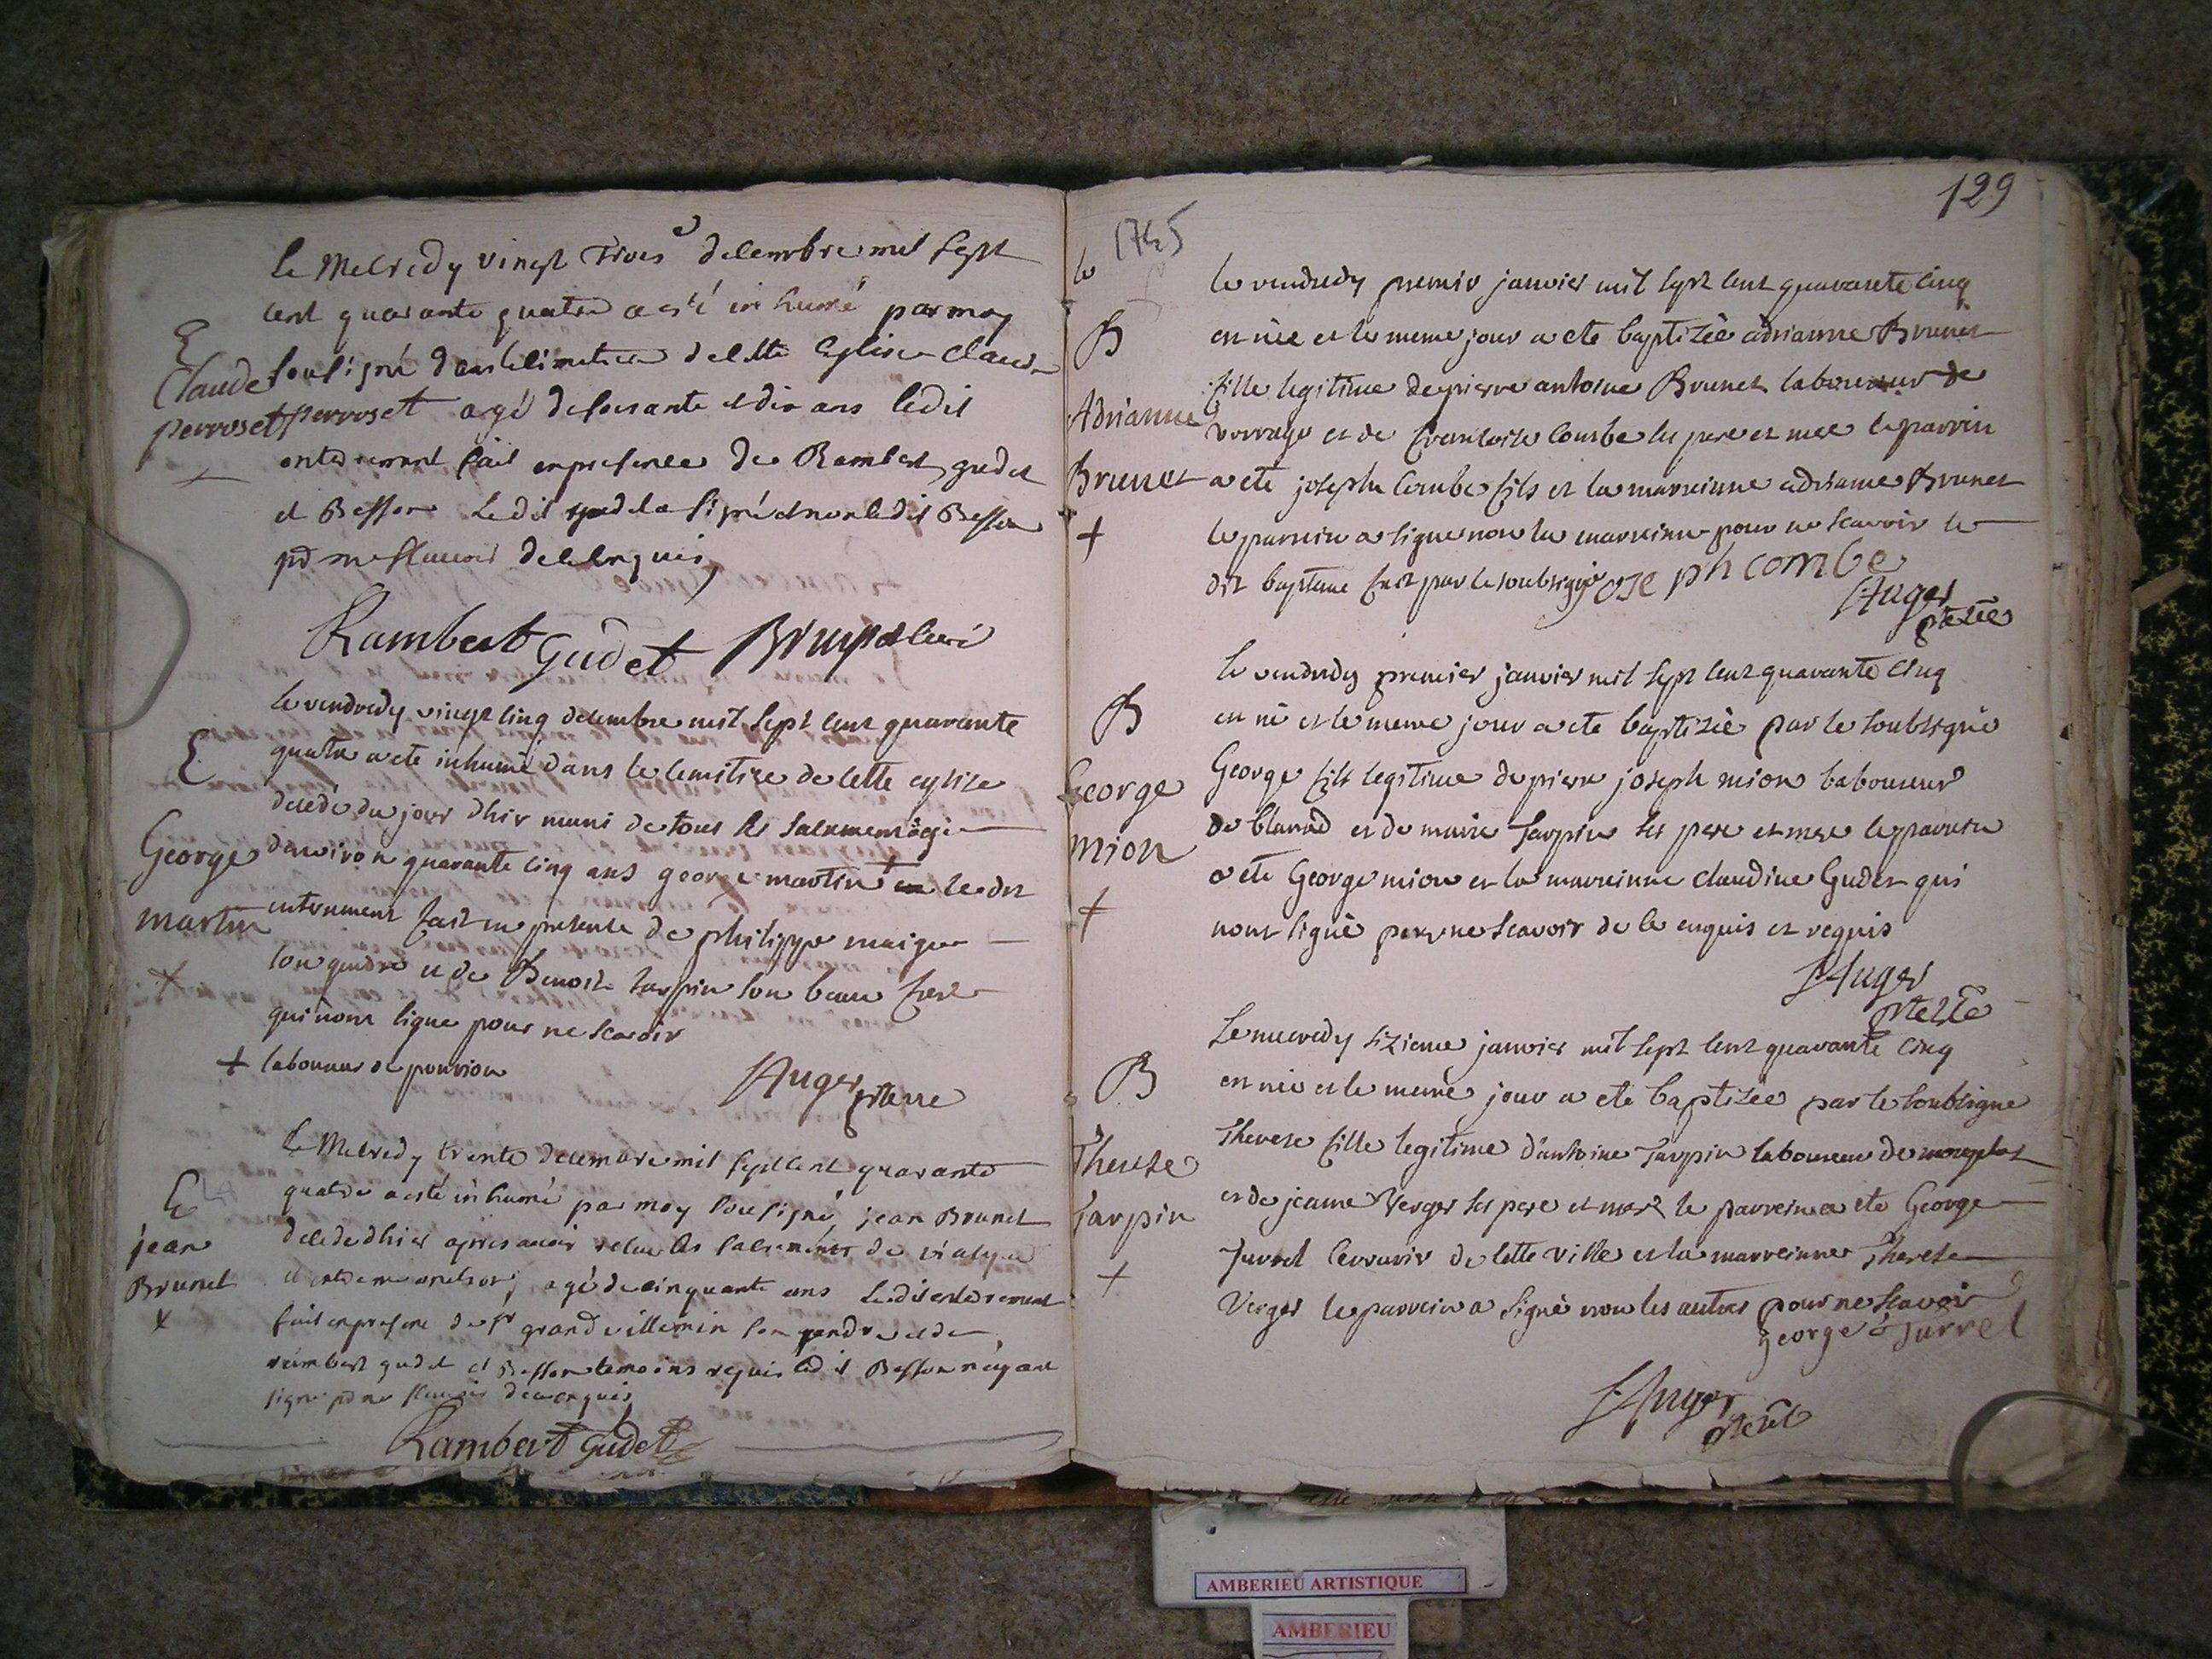 Le Mecredy vingt Trois decembre mil sept
cent quarante quatre a esté inhumé par moy
E
Claude
perroset
+
soussigné dans le cimetiere de cette eglise Claude
perroset agé de soixante et dix ans ledit
enterrement fait en presence de Rambert gudet
et Besson Ledit gudet a signé et non ledit Besson
pr ne scavoir de ce enquis
Rambert Gudet curé
le vendredy vingt cinq decembre mil sept cent quarante
E
George
martin
+
quatre a ete inhumé dans le cemitire de cette eglise
decedé du jour dhir muni de tous les sacremens agé
denviron quarante cinq ans george martin + le dit
enterrement fait en presence de philippe
son gendre et de Benoit tarpin son beau frere
qui nont signe pour ne scavoir
+ laboureur de
Auger ptre
Le Mecredy trente decembre mil sept cent quarante
E
jean
Brunet
x
quatre a esté inhumé par moy soussigné jean Brunet
decedé dhier apres avoir recu les sacrements de viatique
et agé de cinquante ans Ledit enterrement
fait en presence de sr grand villemin son gendre et de
rambert gudet et Besson temoins requis ledit Besson n'ayant
signé pr ne scavoir de ce enquis
Rambert Gudet
129
1745
le
le vendredy premir janvier mil sept cent quarante cinq
B
Adrianne
Brunet
+
en née et le meme jour a ete baptizée adrianne Brunet
fille legitime de pierre antoine Brunet laboureur de
et de francoise Combe ses pere et mere le parrin
a ete joseph Combe fils et la marreinne adrianne Brunet
le parrein a signe non la marreinne pour ne scavoir le
dit bapteme fait par le soubsigné joseph combe
Auger
ptre
le vendredy premier janvier mil sept cent quarante cinq
B
George
mion
+
en né et le meme jour a ete baptizée par le soubsigné
George fils legitime de pierre joseph mion laboureur
de et de marie Tarpin ses pere et mere le parrein
a ete George mion et la marreinne claudine Gudet qui
nont signé pour ne scavoir de ce enquis et requis
Auger
ptre
Le mecredy sizieme janvier mil sept cent quarante cinq
B
Therese
Tarpin
+
en née et le meme jour a ete baptizée par le soubsigne
Therese fille legitime d'antoine Tarpin laboureur de
et de jeanne Verger ses pere et mere le parrein a ete George
Jurret serrurir de cette ville et la marreinne Therese
Verger le parrein a signé non les autres pour ne scavoir
george Jurret
Auger
ptre
AMBERIEU ARTISTIQUE
AMBERIEU